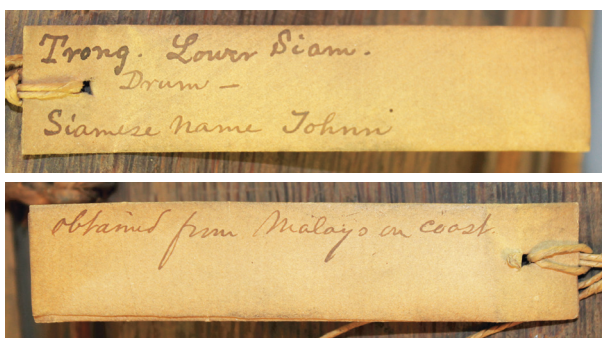 Trong. Lower Siam.
Drum —
Siamese name Tohnn
obtained from Malays on coast.